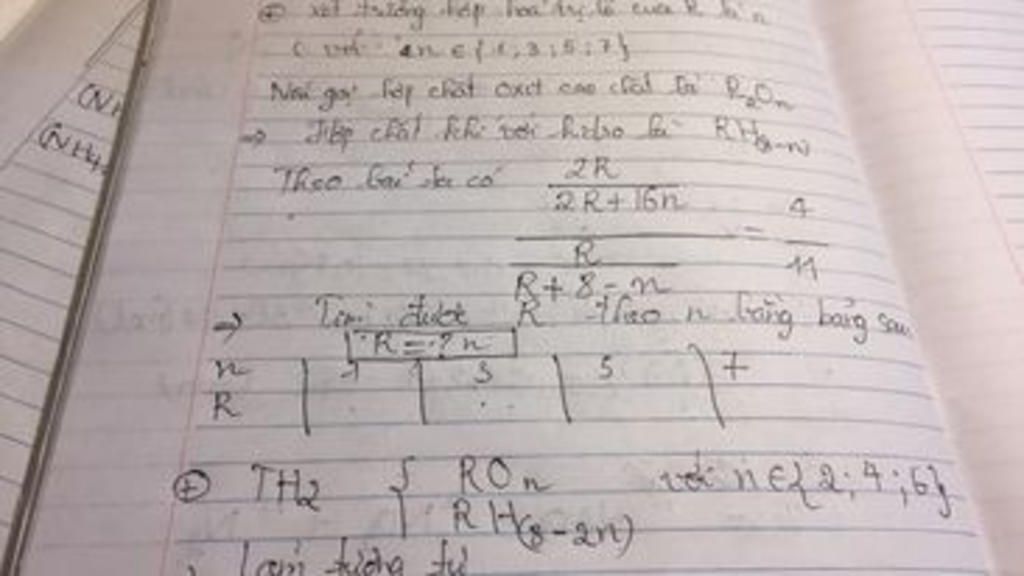 (NH
(NH4
⊕ xét trường hợp hoá trị lẻ của R là n
( với n ∈ {1; 3; 5; 7}
Nên gọi hợp chất oxit cao nhất là R2On
=> Hợp chất khí với hidro là RH(8-n)
Theo bài ta có
2R
2R+16n
4
=
R
11
R+8-n
=> Tìm được R theo n bằng bảng sau
R = ? n
n 1 3 5 7
R
⊕ TH2 { ROn với n ∈ {2; 4; 6}
RH(8-2n)
Làm tương tự